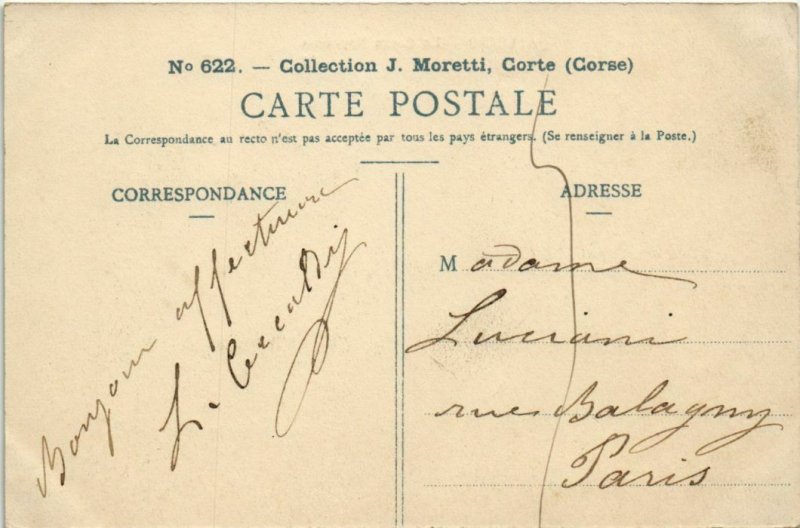 No 622. — Collection J. Moretti, Corte (Corse)
CARTE POSTALE
La Correspondance au recto n'est pas acceptée par tous les pays étrangers. (Se renseigner à la Poste.)
CORRESPONDANCE
Bonjour affectueux
L. Ceccaldi
ADRESSE
Madame
Luciani
rue Balagny
Paris